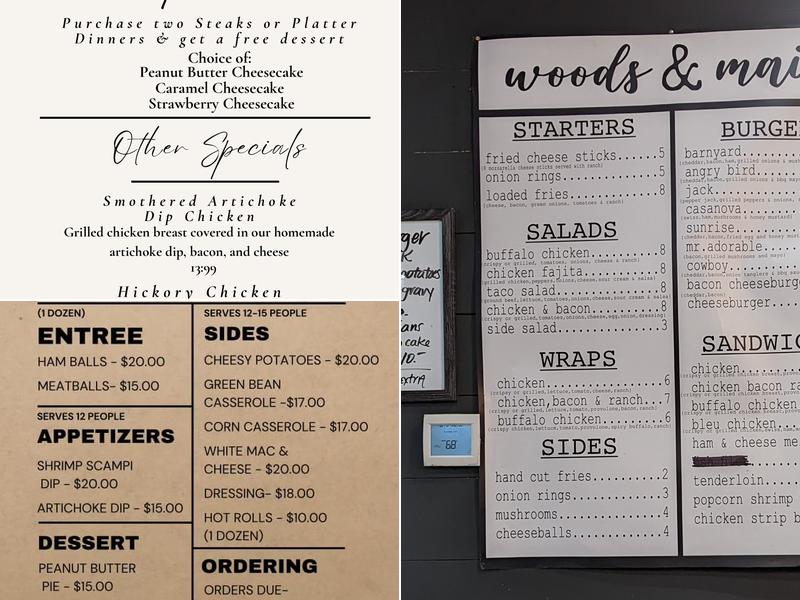 Purchase two Steaks or Platter
Dinners & get a free dessert
Choice of:
Peanut Butter Cheesecake
Caramel Cheesecake
Strawberry Cheesecake
Other Specials
Smothered Artichoke
Dip Chicken
Grilled chicken breast covered in our homemade
artichoke dip, bacon, and cheese
13:99
Hickory Chicken
(1 DOZEN)
ENTREE
HAM BALLS - $20.00
MEATBALLS- $15.00
SERVES 12 PEOPLE
APPETIZERS
SHRIMP SCAMPI
DIP - $20.00
ARTICHOKE DIP - $15.00
DESSERT
PEANUT BUTTER
PIE - $15.00
SERVES 12-15 PEOPLE
SIDES
CHEESY POTATOES - $20.00
GREEN BEAN
CASSEROLE -$17.00
CORN CASSEROLE - $17.00
WHITE MAC &
CHEESE - $20.00
DRESSING- $18.00
HOT ROLLS - $10.00
(1 DOZEN)
ORDERING
ORDERS DUE-
gravy
10.-
extra
68
woods & mai
STARTERS
fried cheese sticks......5
(8 mozzarella cheese sticks served with ranch)
onion rings..............5
loaded fries.............8
(cheese, bacon, green onions, tomatoes & ranch)
SALADS
buffalo chicken..........8
(crispy or grilled, tomatoes, onions, cheese)
chicken fajita...........8
taco salad...............8
chicken & bacon..........8
side salad...............3
WRAPS
chicken................6
(crispy or grilled,lettuce,tomato,cheese,ranch)
chicken,bacon & ranch...7
buffalo chicken........6
SIDES
hand cut fries.........2
onion rings............3
mushrooms..............4
cheeseballs............4
BURGE
barnyard
angry bird
jack
casanova
sunrise
mr.adorable
cowboy
bacon cheeseburg
cheeseburger
SANDWIC
chicken
chicken bacon ra
buffalo chicken
bleu chicken
ham & cheese me
tenderloin
popcorn shrimp
chicken strip b